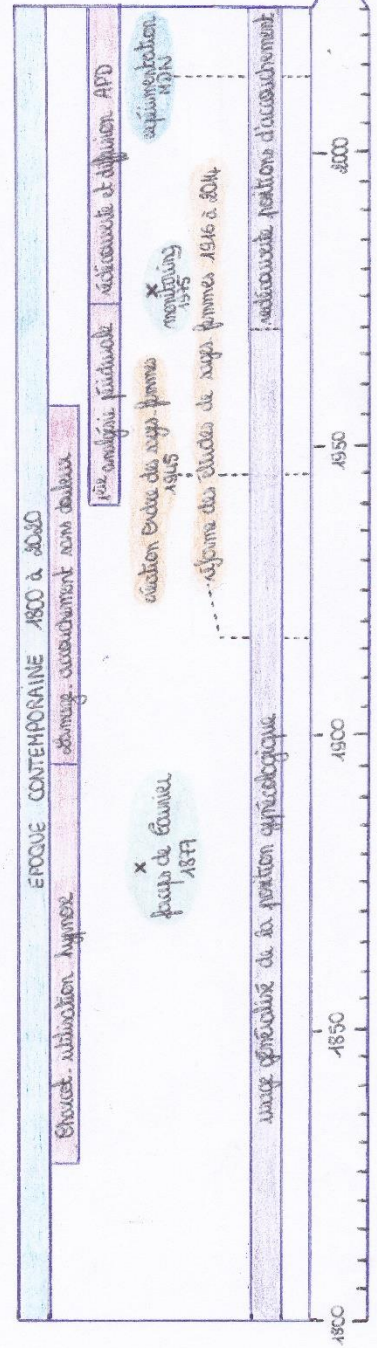 EPOQUE CONTEMPORAINE 1800 à 2020
Charcot. utilisation hypnose
Lamaze. accouchement sans douleur
1ère analgésie péridurale
redécouverte et diffusion APD
x
forceps de Tarnier
1877
création Ordre des sages femmes
1945
x
monitoring
1975
expérimentation
MDN
réforme des études de sages femmes 1916 à 2014
usage généralisé de la position gynécologique
redécouverte positions d'accouchement
1800
1850
1900
1950
2000